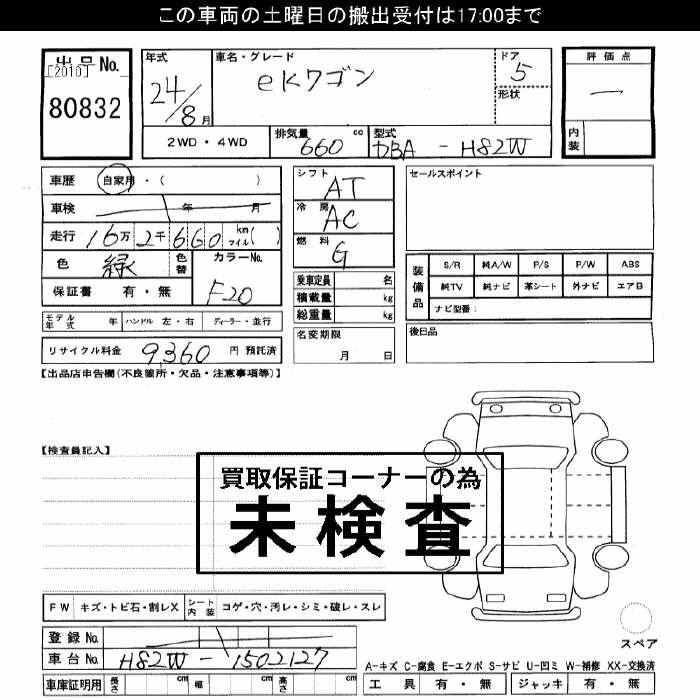 この車両の土曜日の搬出受付は17:00まで
出品No.
[2010]
80832
年式
24/8月
車名・グレード
eKワゴン
ドア
5
形状
評価点
一
内装
2WD・4WD
排気量
660 cc
型式
DBA - H82W
車歴 自家用・( )
車検 年 月
走行 16万2千660 km マイル( )
色 緑 色替 カラーNo.
F20
保証書 有・無
シフト
AT
冷房
AC
燃料
G
乗車定員 名
積載量 kg
総重量 kg
名変期限
月 日
セールスポイント
装備品
S/R 純A/W P/S P/W ABS
純TV 純ナビ 革シート 外ナビ エアB
ナビ型番:
後日品
モデル年式 年 ハンドル 左・右 ディーラー・並行
リサイクル料金 9,360 円 預託済
【出品店申告欄(不良箇所・欠品・注意事項等)】
【検査員記入】
買取保証コーナーの為
未検査
FW キズ・トビ石・割レX シート内装 コゲ・穴・汚レ・シミ・破レ・スレ
登録No.
車台No. H82W-1502127
車庫証明用 長さ cm 幅 cm 高さ cm
スペア
A-キズ C-腐食 E-エクボ S-サビ U-凹ミ W-補修 XX-交換済
工具 有・無 ジャッキ 有・無